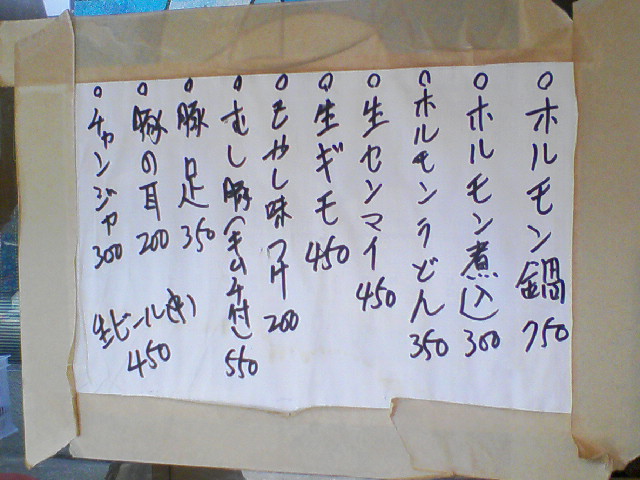 ○ホルモン鍋 750
○ホルモン煮込 300
○ホルモンうどん 350
○生センマイ 450
○生ギモ 450
○もやし味つけ 200
○むし豚(キムチ付) 550
○豚足 350
○豚の耳 200
○チャンジャ 300
生ビール(中) 450